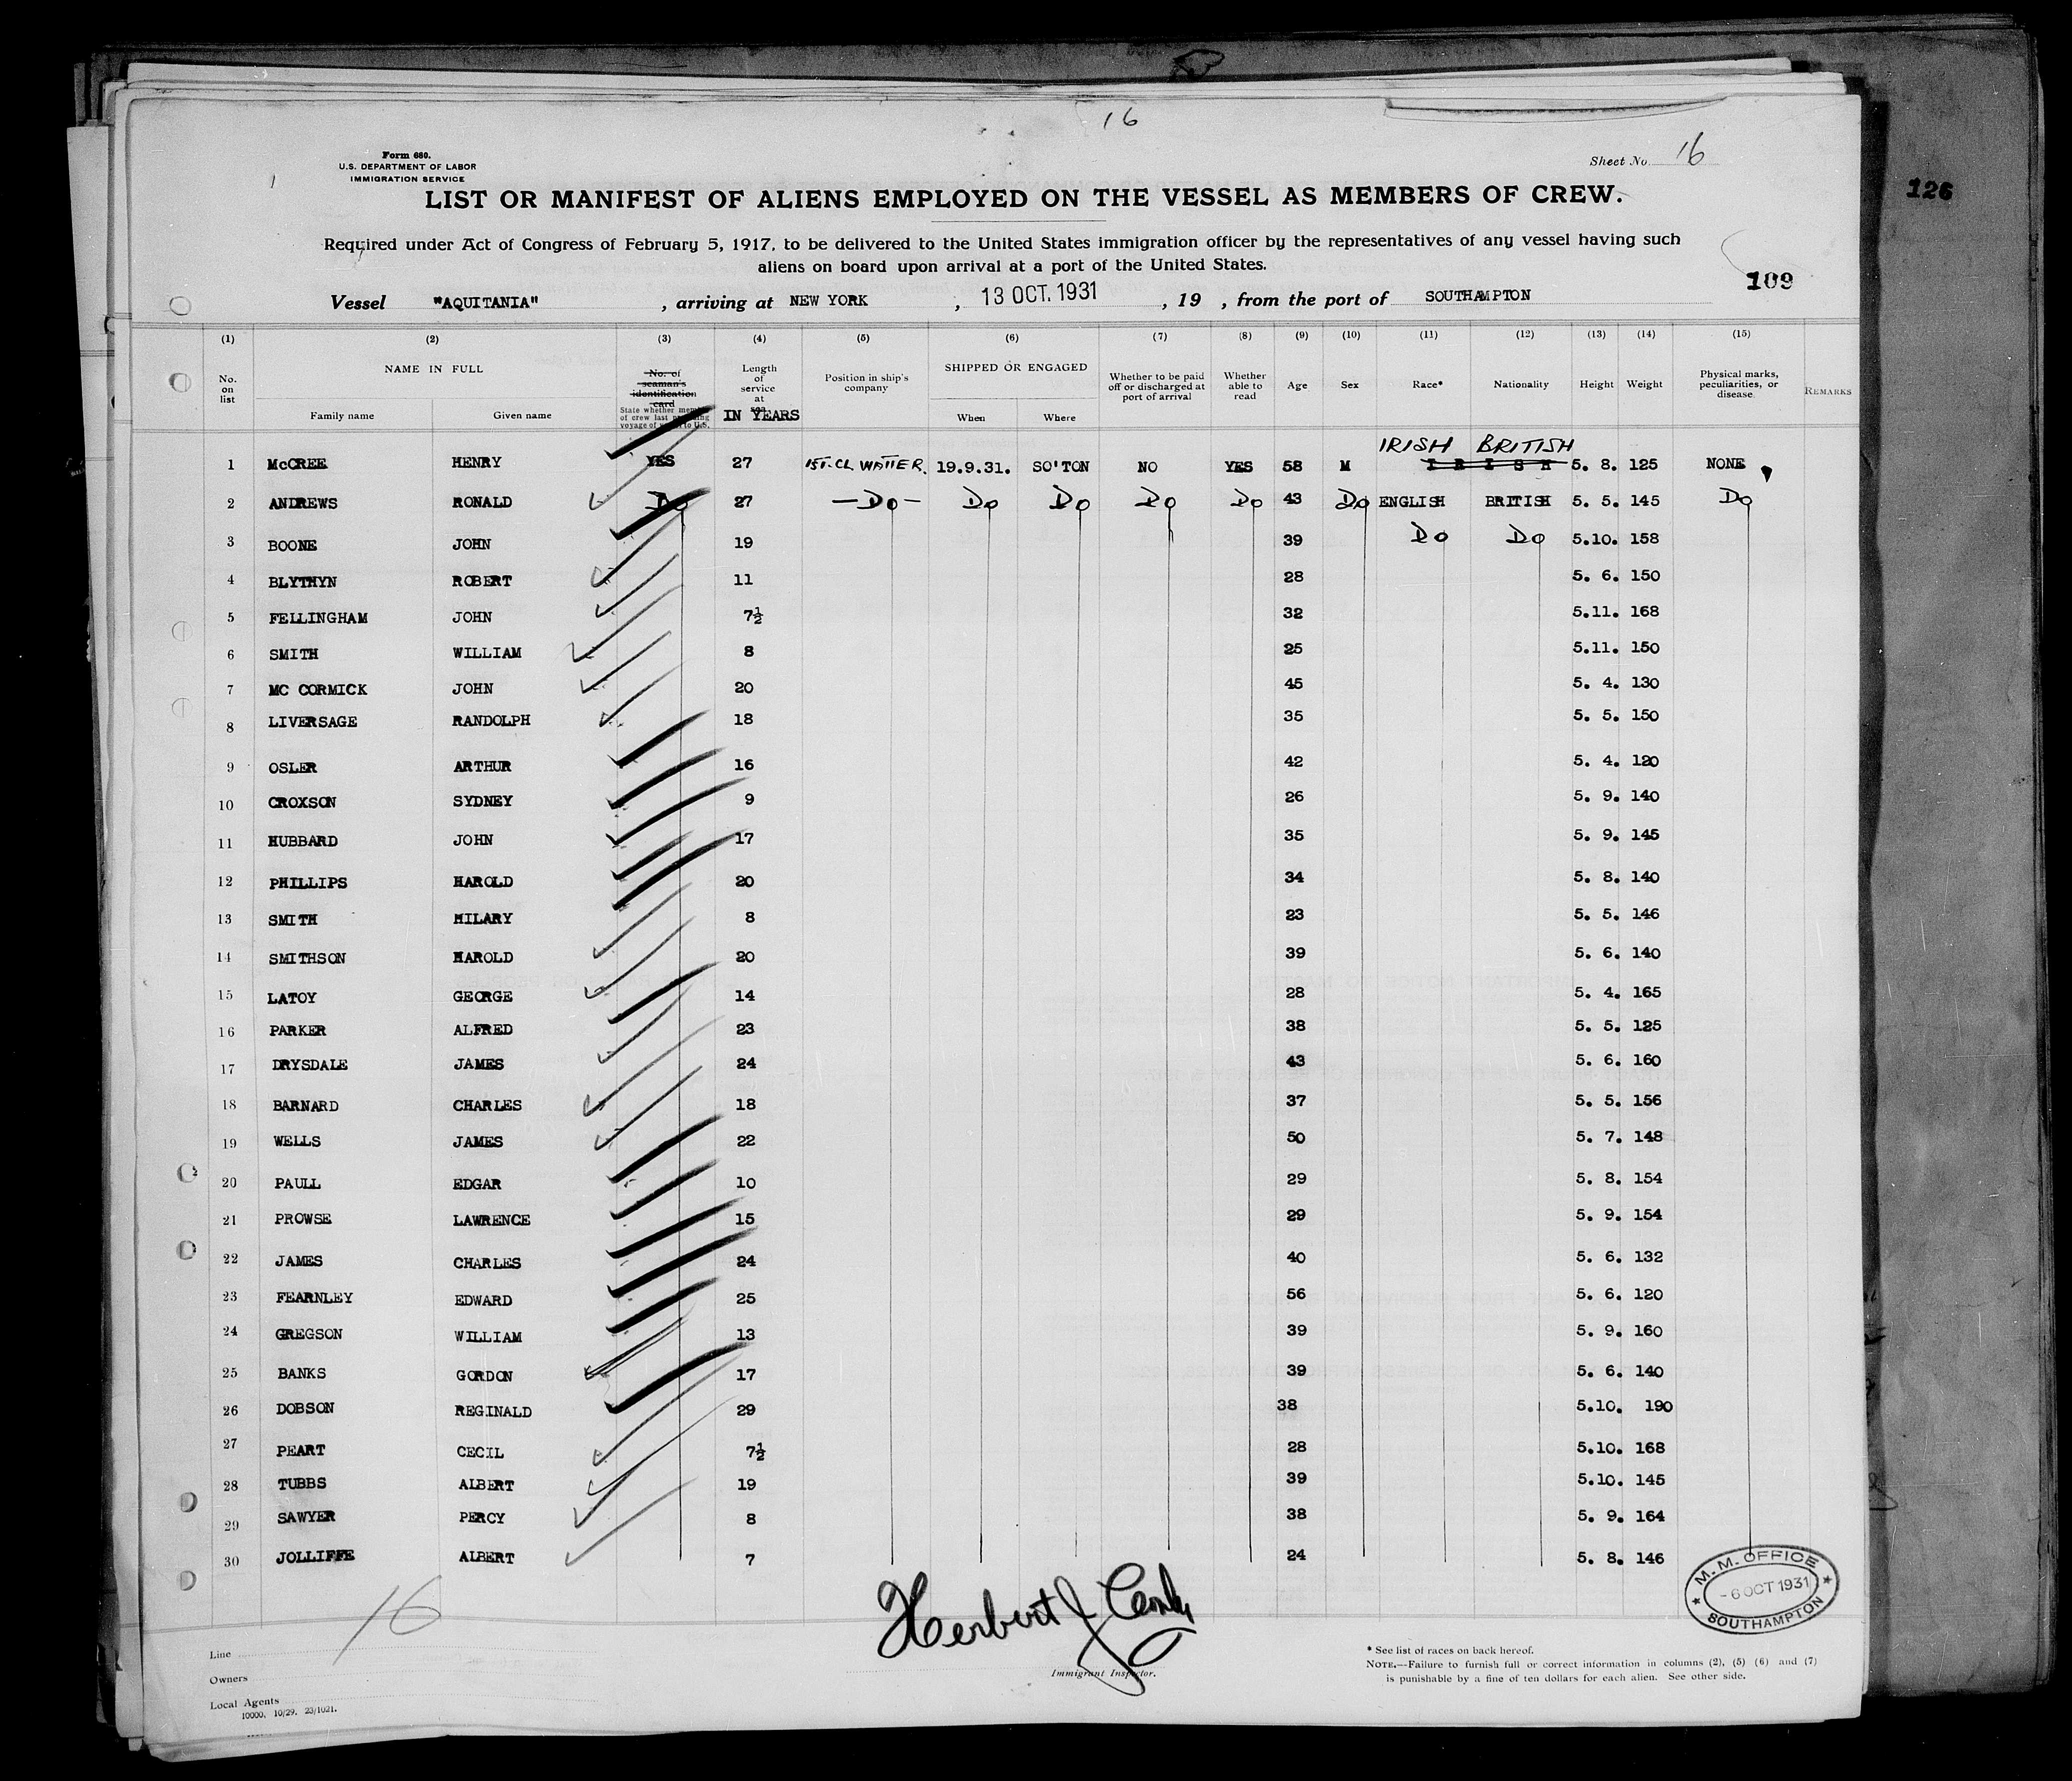 16
Form 680.
U.S. DEPARTMENT OF LABOR
IMMIGRATION SERVICE
Sheet No. 16
126
LIST OR MANIFEST OF ALIENS EMPLOYED ON THE VESSEL AS MEMBERS OF CREW.
Required under Act of Congress of February 5, 1917, to be delivered to the United States immigration officer by the representatives of any vessel having such
aliens on board upon arrival at a port of the United States.
109
Vessel "AQUITANIA" , arriving at NEW YORK , 13 OCT. 1931 , 19 , from the port of SOUTHAMPTON
(1) (2) (3) (4) (5) (6) (7) (8) (9) (10) (11) (12) (13) (14) (15)
No. on list NAME IN FULL Family name Given name No. of seaman's identification card State whether member of crew last preceding voyage of vessel to U.S. Length of service at sea IN YEARS Position in ship's company SHIPPED OR ENGAGED When Where Whether to be paid off or discharged at port of arrival Whether able to read Age Sex Race* Nationality Height Weight Physical marks, peculiarities, or disease REMARKS
IRISH BRITISH
1 McCREE HENRY YES 27 1ST. CL WAITER. 19.9.31. SO'TON NO YES 58 M IRISH 5. 8. 125 NONE
2 ANDREWS RONALD Do 27 —Do— Do Do Do Do 43 Do ENGLISH BRITISH 5. 5. 145 Do
3 BOONE JOHN 19 39 Do Do 5.10. 158
4 BLYTHYN ROBERT 11 28 5. 6. 150
5 FELLINGHAM JOHN 7½ 32 5.11. 168
6 SMITH WILLIAM 8 25 5.11. 150
7 MC CORMICK JOHN 20 45 5. 4. 130
8 LIVERSAGE RANDOLPH 18 35 5. 5. 150
9 OSLER ARTHUR 16 42 5. 4. 120
10 CROXSON SYDNEY 9 26 5. 9. 140
11 HUBBARD JOHN 17 35 5. 9. 145
12 PHILLIPS HAROLD 20 34 5. 8. 140
13 SMITH HILARY 8 23 5. 5. 146
14 SMITHSON HAROLD 20 39 5. 6. 140
15 LATOY GEORGE 14 28 5. 4. 165
16 PARKER ALFRED 23 38 5. 5. 125
17 DRYSDALE JAMES 24 43 5. 6. 160
18 BARNARD CHARLES 18 37 5. 5. 156
19 WELLS JAMES 22 50 5. 7. 148
20 PAULL EDGAR 10 29 5. 8. 154
21 PROWSE LAWRENCE 15 29 5. 9. 154
22 JAMES CHARLES 24 40 5. 6. 132
23 FEARNLEY EDWARD 25 56 5. 6. 120
24 GREGSON WILLIAM 13 39 5. 9. 160
25 BANKS GORDON 17 39 5. 6. 140
26 DOBSON REGINALD 29 38 5.10. 190
27 PEART CECIL 7½ 28 5.10. 168
28 TUBBS ALBERT 19 39 5.10. 145
29 SAWYER PERCY 8 38 5. 9. 164
30 JOLLIFFE ALBERT 7 24 5. 8. 146
M. M. OFFICE
-6 OCT 1931
SOUTHAMPTON
16
Herbert J
Line
Owners
Local Agents
10000. 10/29. 23/1021.
Immigrant Inspector.
* See list of races on back hereof.
NOTE.—Failure to furnish full or correct information in columns (2), (5) (6) and (7)
is punishable by a fine of ten dollars for each alien. See other side.